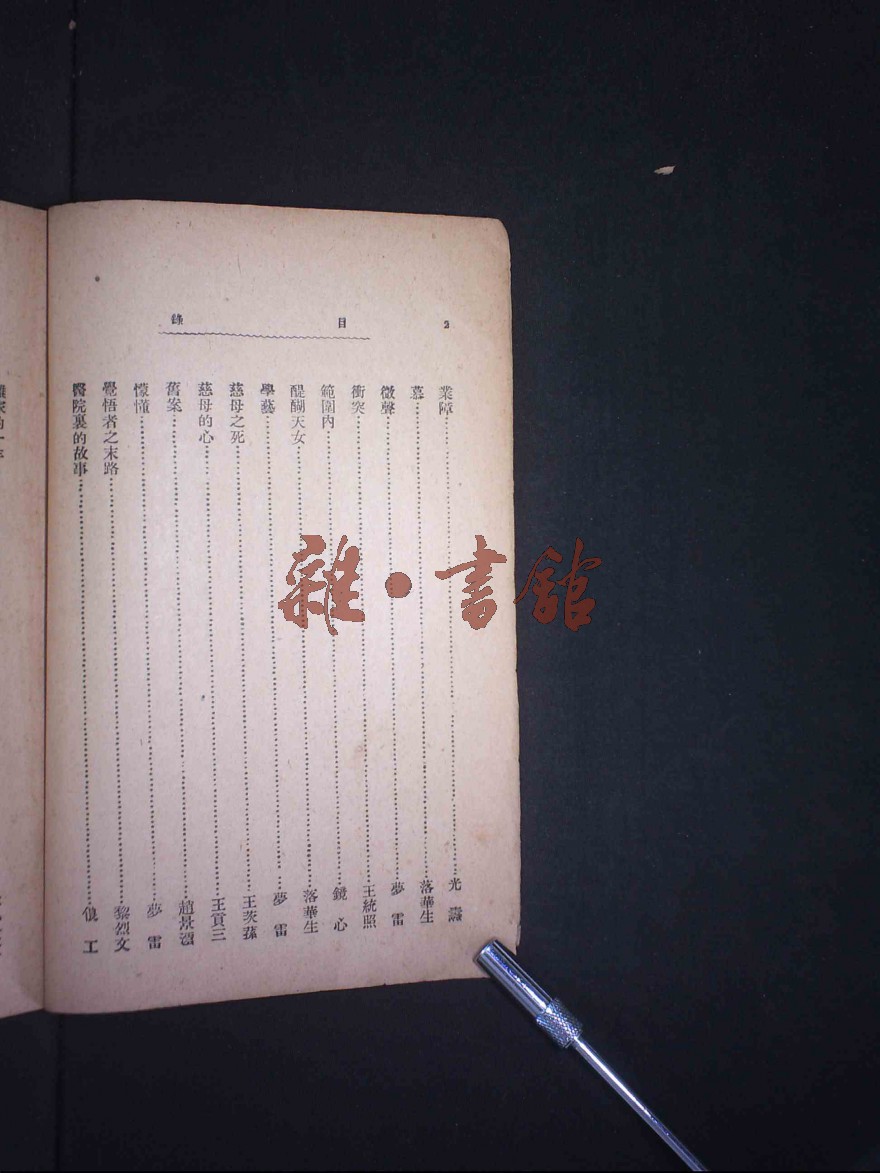 2 目錄
業障……光燾
慕……落華生
微聲……夢雷
衝突……王統照
範圍內……鏡心
醍醐天女……落華生
學藝……夢雷
慈母之死……王茨蓀
慈母的心……王貢三
舊案……趙景深
懞懂……夢雷
覺悟者之末路……黎烈文
醫院裏的故事……俍工
雜·書館